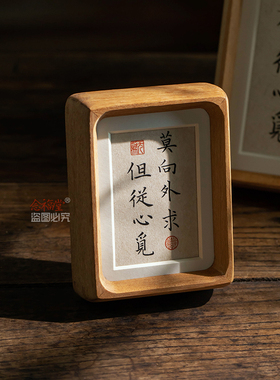 莫向外求
但從心覓
盗图必究